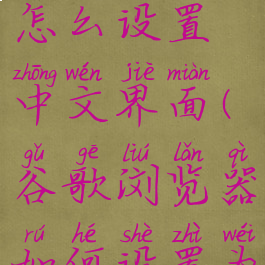 怎么设置
zhōng wén jiè miàn
中文界面(
gǔ gē liú lǎn qì
谷歌浏览器
rú hé shè zhì wéi
如何设置为